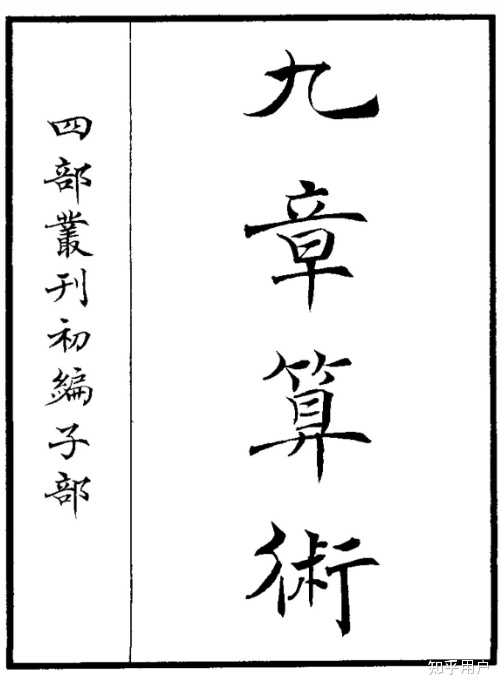 九章算術
四部叢刊初編子部
知乎用户